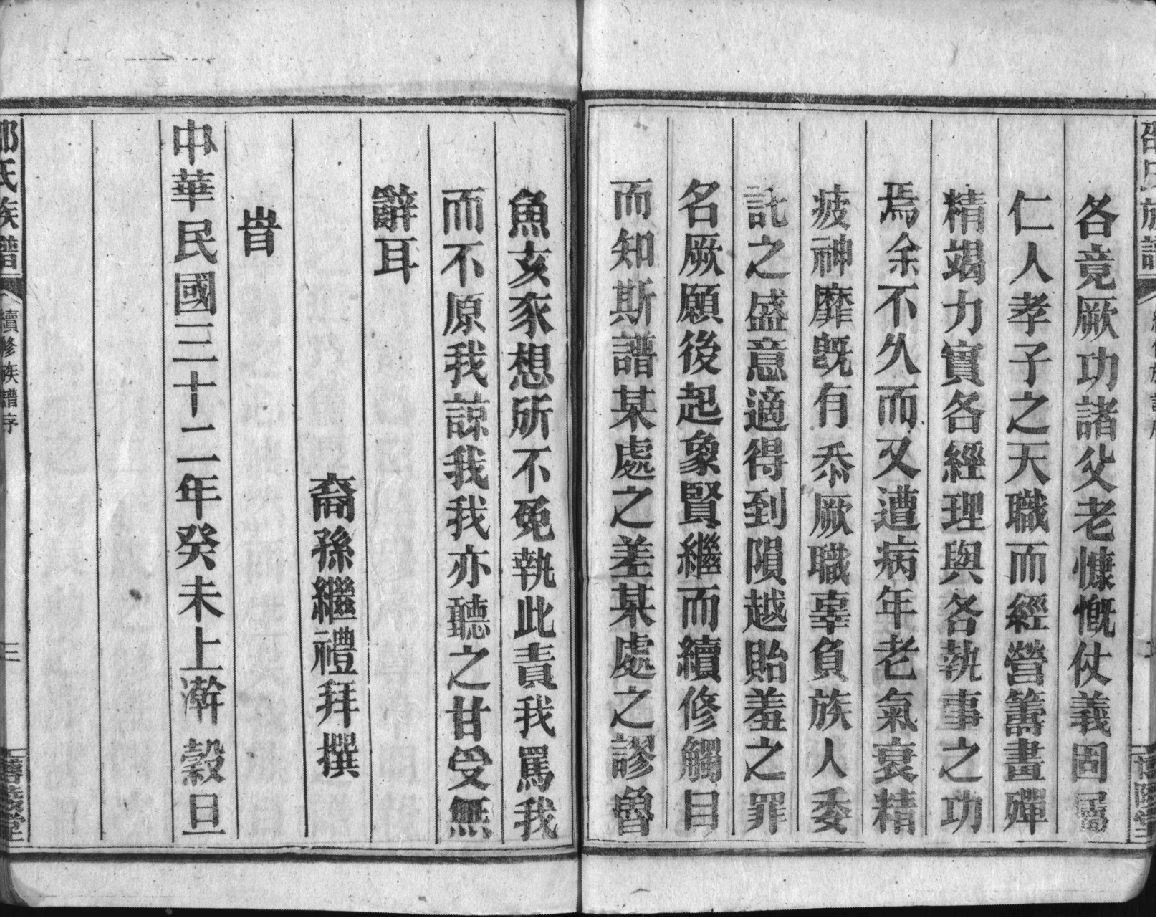 各竟厥功諸父老慷慨仗義固屬
仁人孝子之天職而經營籌畫殫
精竭力實各經理與各執事之功
焉余不久而又遭病年老氣衰精
疲神靡旣有忝厥職辜負族人委
託之盛意適得到隕越貽羞之罪
名厥願後起象賢繼而續修觸目
而知斯譜某處之差某處之謬魯
魚亥豕想所不免執此責我罵我
而不原我諒我我亦聽之甘受無
辭耳
裔孫繼禮拜撰
旹
中華民國三十二年癸未上澣 穀旦
邵氏族譜
續修族譜序
三